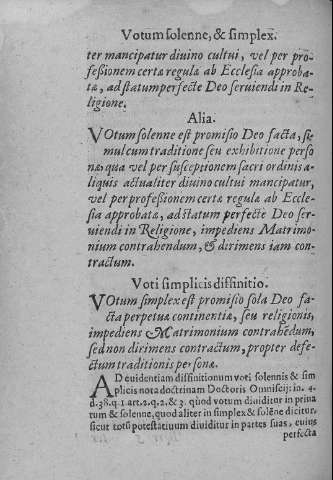 Votum solenne, & simplex.
ter mancipatur diuino cultui, vel per pro-
fessionem certæ regulæ ab Ecclesia approba-
tæ, ad statum perfecte Deo seruiendi in Re-
ligione.
Alia.
VOtum solenne est promissio Deo facta, si-
mul cum traditione seu exhibitione perso
næ, qua vel per susceptionem sacri ordinis a-
liquis actualiter diuino cultui mancipatur,
vel per professionem certæ regulæ ab Eccle-
sia approbatæ, ad statum perfecte Deo ser-
uiendi in Religione, impediens Matrimo-
nium contrahendum, & dirimens iam con-
tractum.
Voti simplicis diffinitio.
VOtum simplex est promissio sola Deo fa-
cta perpetuæ continentiæ, seu religionis,
impediens Matrimonium contrahēdum,
sed non dirimens contractum, propter defe-
ctum traditionis personæ.
AD euidentiam diffinitionum voti solennis & sim
plicis nota doctrinam Doctoris Omniscij: in. 4.
d. 38. q. 1. art. 2. q. 2. & 3. quòd votum diuiditur in priua
tum & solenne, quod aliter in simplex & solēne dicitur,
sicut totū potestatiuum diuiditur in partes suas, cuius
perfecta